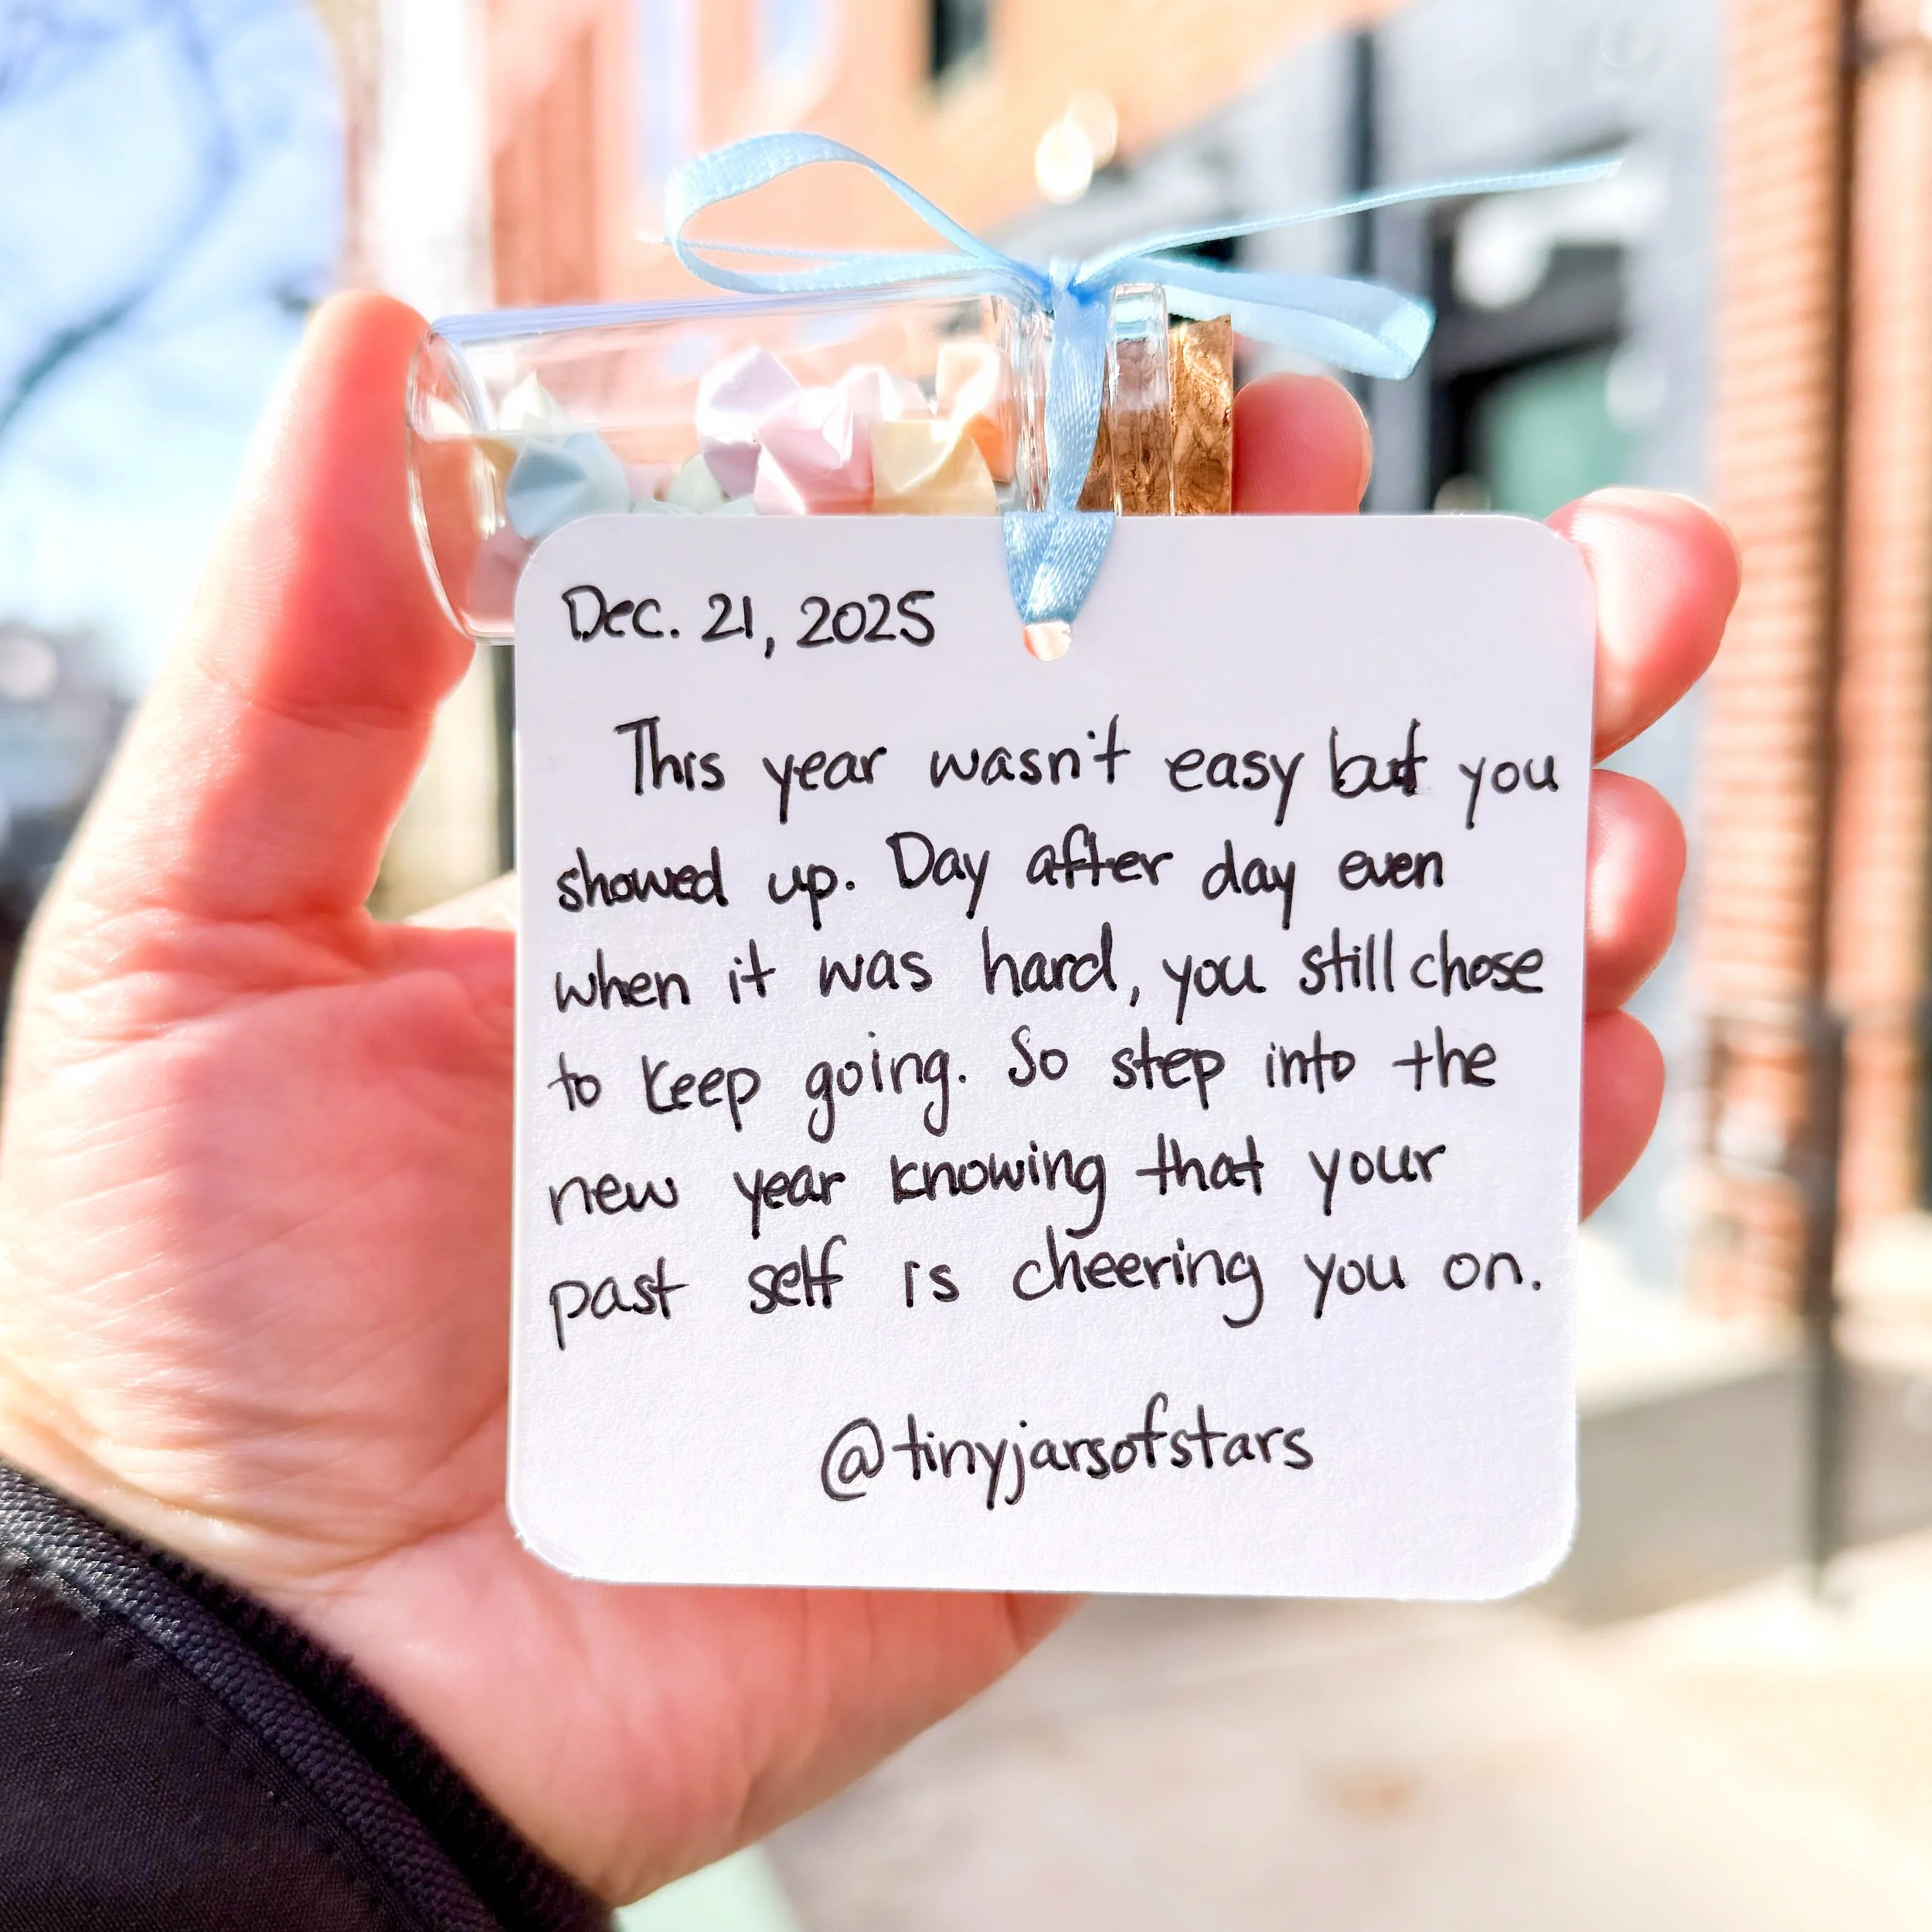 Dec. 21, 2025
This year wasn't easy but you
showed up. Day after day even
when it was hard, you still chose
to keep going. So step into the
new year knowing that your
past self is cheering you on.
@tinyjarsofstars